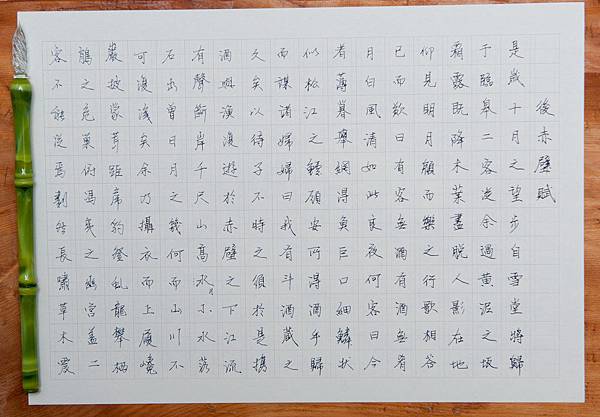 後赤壁賦
是歲十月之望步自雪堂將歸
于臨皋二客從余過黃泥之坂
霜露既降木葉盡脫人影在地
仰見明月顧而樂之行歌相答
已而歎曰有客無酒有酒無肴
月白風清如此良夜何客曰今
者薄暮舉網得魚巨口細鱗狀
似松江之鱸顧安所得酒乎歸
而謀諸婦婦曰我有斗酒藏之
久矣以待子不時之須於是攜
酒與漁復遊於赤壁之下江流
有聲斷岸千尺山高水月小水落
石出曾日月之幾何而山川不
可復識矣余乃攝衣而上履巉
巖披蒙茸踞虎豹登虬龍攀栖
鶻之危巢俯馮夷之幽宮蓋二
客不能從焉劃然長嘯草木震